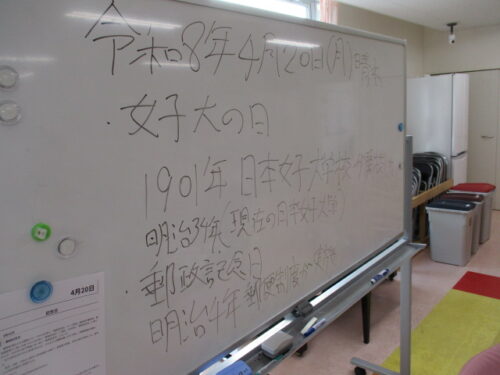 令和8年4月20日(月)
・女子大の日
1901年 日本女子大学校が
明治34年(現在の日本女子大学)
・郵政記念日
明治4年 郵便制度が
4月20日